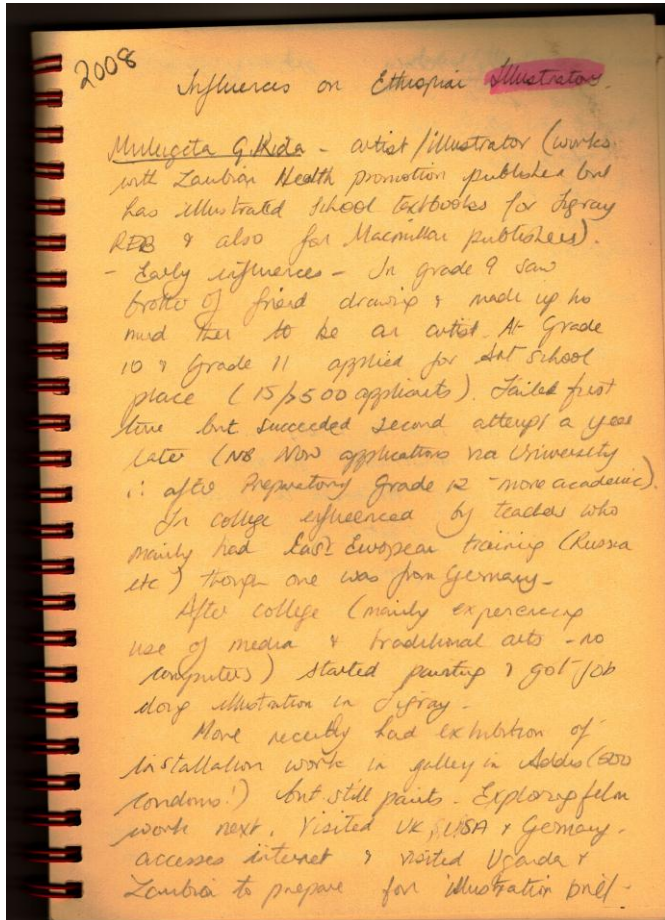 2008
Influences on Ethiopian Illustrators.
Mulugeta G. Kida - artist/illustrator (works
with Zambian Health promotion publisher but
has illustrated School textbooks for Tigray
REB & also for Macmillan publishers).
- Early influences - In grade 9 saw
brother of friend drawing & made up his
mind then to be an artist. At Grade
10 & Grade 11 applied for Art School
place (15/>500 applicants). Failed first
time but succeeded second attempt a year
later (NB Now applications via University
∴ after Preparatory Grade 12 - more academic).
In college influenced by teachers who
mainly had East European training (Russia
etc) though one was from Germany -
After college (mainly experiencing
use of media & traditional arts - no
computers) started painting & got job
doing illustration in Tigray -
More recently had exhibition of
installation work in gallery in Addis (500
condoms!) but still paints. Exploring film
work next. Visited UK, USA & Germany -
accesses internet & visited Uganda &
Zambia to prepare for illustration brief -